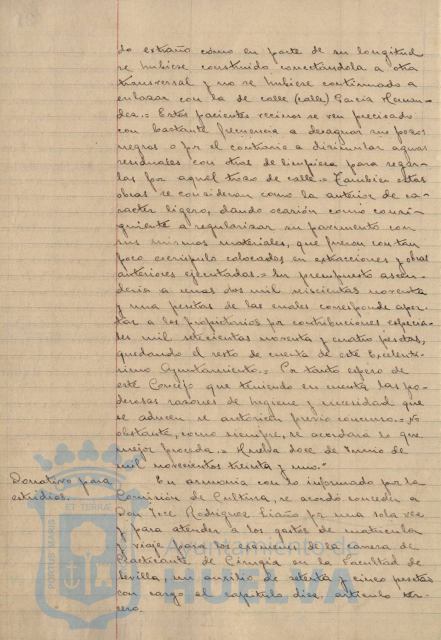 do extraño como en parte de su longitud
se hubiese construido conectándola a otra
transversal y no se hubiese continuado a
enlazar con la de calle (calle) Garcia Hernan-
dez.= Estos pacientes vecinos se ven precisado
con bastante frecuencia a desaguar sus pozos
negros o por el contrario a disimular aguas
residuales con otras de limpieza para regar-
las por aquel trozo de calle.= Tambien estas
obras se consideran como la anterior de ca-
racter ligero, dando ocasión como consi-
guiente a regularizar su pavimento con
sus mismos materiales, que fueron con tan
poco escrúpulo colocados en extracciones y obras
anteriores ejecutadas.= Su presupuesto ascen-
deria a unas dos mil seiscientas noventa
y una pesetas de las cuales corresponde apor-
tar a los propietarios por contribuciones especia-
les mil setecientas noventa y cuatro pesetas,
quedando el resto de cuenta de este Excelentí-
simo Ayuntamiento.= Por tanto espero de
este Concejo que teniendo en cuenta las po-
derosas razones de higiene y necesidad que
se aducen se autoricen previo concurso.= No
obstante, como siempre, se acordara lo que
mejor proceda.= Huelva doce de Junio de
mil novecientos treinta y uno."
Donativo para
estudios.
En armonia con lo informado por la
Comisión de Cultura, se acordó conceder a
Don José Rodriguez Liaño por una sola vez
y para atender a los gastos de matricula
y viaje para los examenes de la carrera de
Practicante de Cirugia en la Facultad de
Sevilla, un auxilio de setenta y cinco pesetas
con cargo al capitulo diez, articulo ter-
cero.
PORTUS MARIS ET TERRÆ
Ayuntamiento de
HUELVA